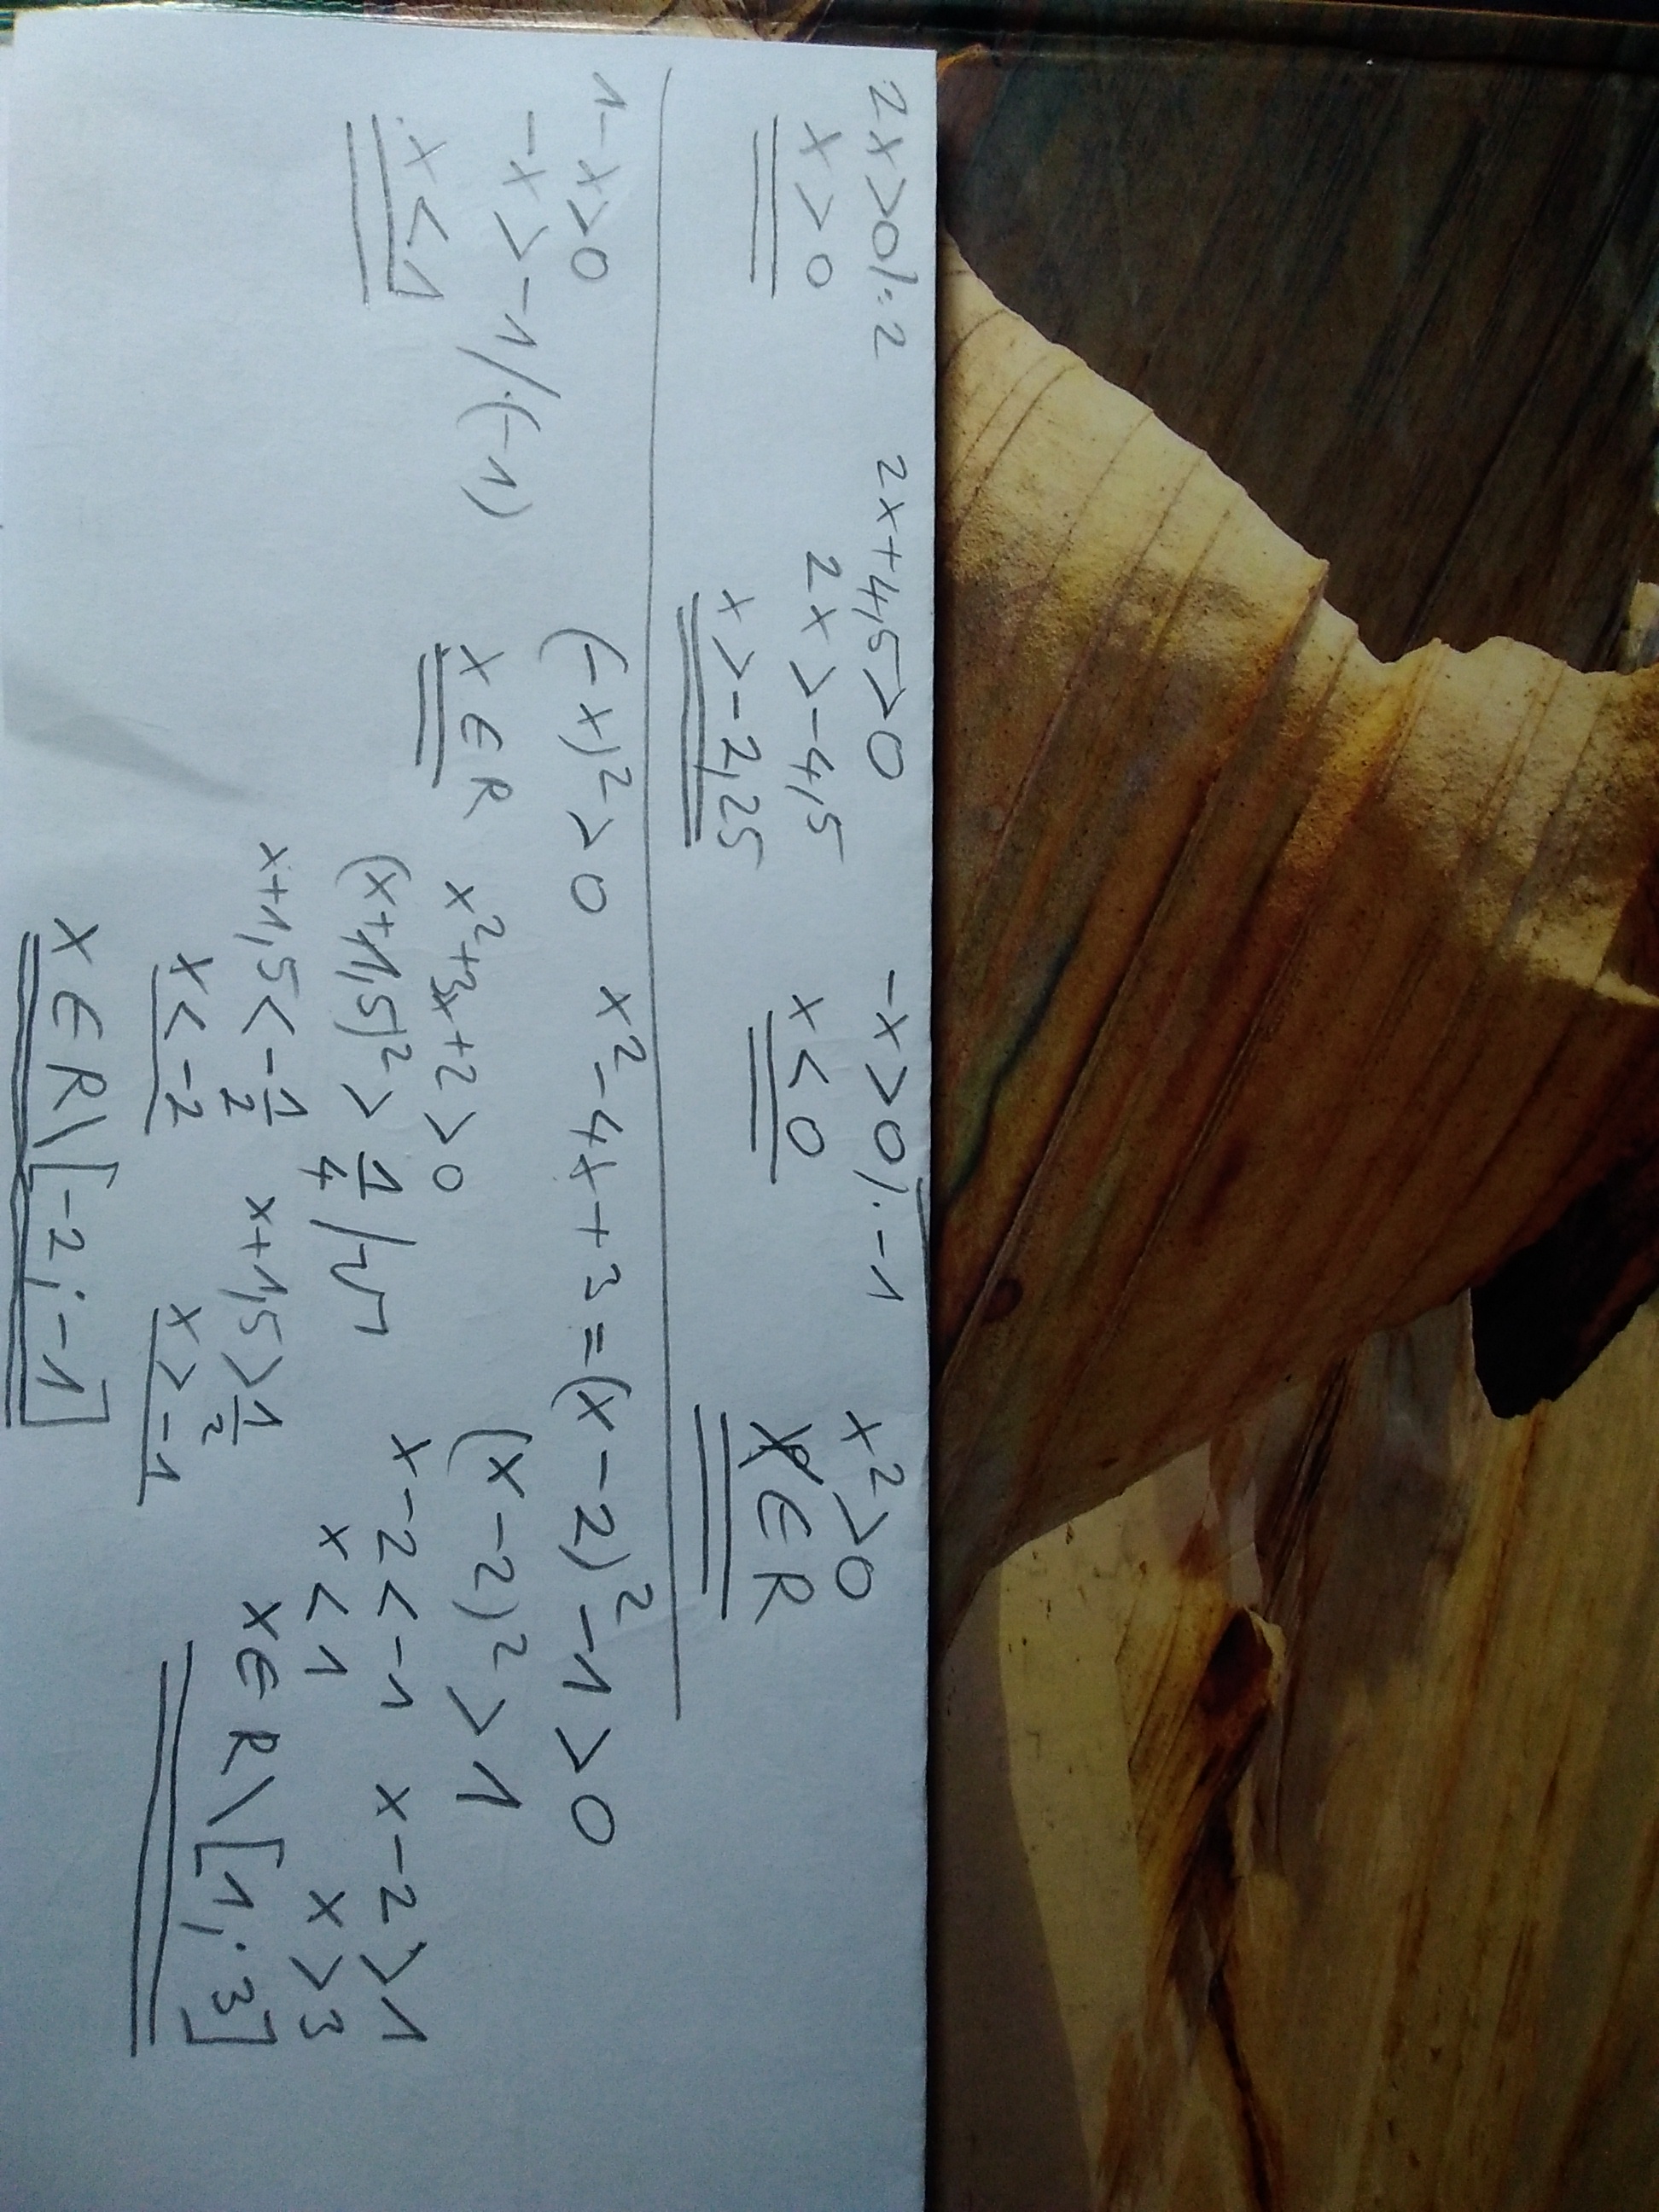 2x>0/:2
x>0
2x+4,5>0
2x>-4,5
x>-2,25
-x>0/·-1
x<0
x²>0
x∈R
1-x>0
-x>-1/·(-1)
x<1
(-x)²>0
x∈R
x²-4x+3=(x-2)²-1>0
(x-2)²>1
x-2<-1 x-2>1
x<1 x>3
x∈R\[1;3]
x²+3x+2>0
(x+1,5)²>1/4 /√
x+1,5<-1/2 x+1,5>1/2
x<-2 x>-1
x∈R\[-2;-1]